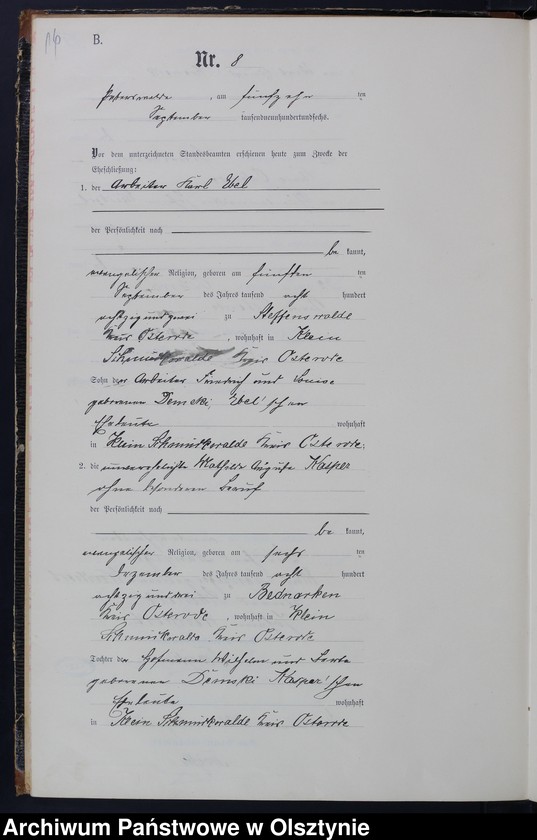 B.
Nr. 8
Peterswalde, am fünfzehn ten
September tausendneunhundertundsechs.
Vor dem unterzeichneten Standesbeamten erschienen heute zum Zwecke der
Eheschließung:
1. der Arbeiter Karl Ebel
der Persönlichkeit nach
be kannt,
evangelischer Religion, geboren am fünften ten
September des Jahres tausend acht hundert
achtzig und zwei zu Steffenswalde
Kreis Osterode, wohnhaft in Klein
Schmückwalde Kreis Osterode
Sohn der Arbeiter Friedrich und Louise
geborenen Demski Ebel'schen
Eheleute wohnhaft
in Klein Schmückwalde Kreis Osterode;
2. die unverehelichte Mathilde Auguste Kasper
ohne besonderen Beruf
der Persönlichkeit nach
be kannt,
evangelischer Religion, geboren am sechs ten
Dezember des Jahres tausend acht hundert
achtzig und drei zu Bednarken
Kreis Osterode, wohnhaft in Klein
Schmückwalde Kreis Osterode
Tochter der Wilhelm und
geborenen Demski Kasper'schen
Eheleute wohnhaft
in Klein Schmückwalde Kreis Osterode
Archiwum Państwowe w Olsztynie